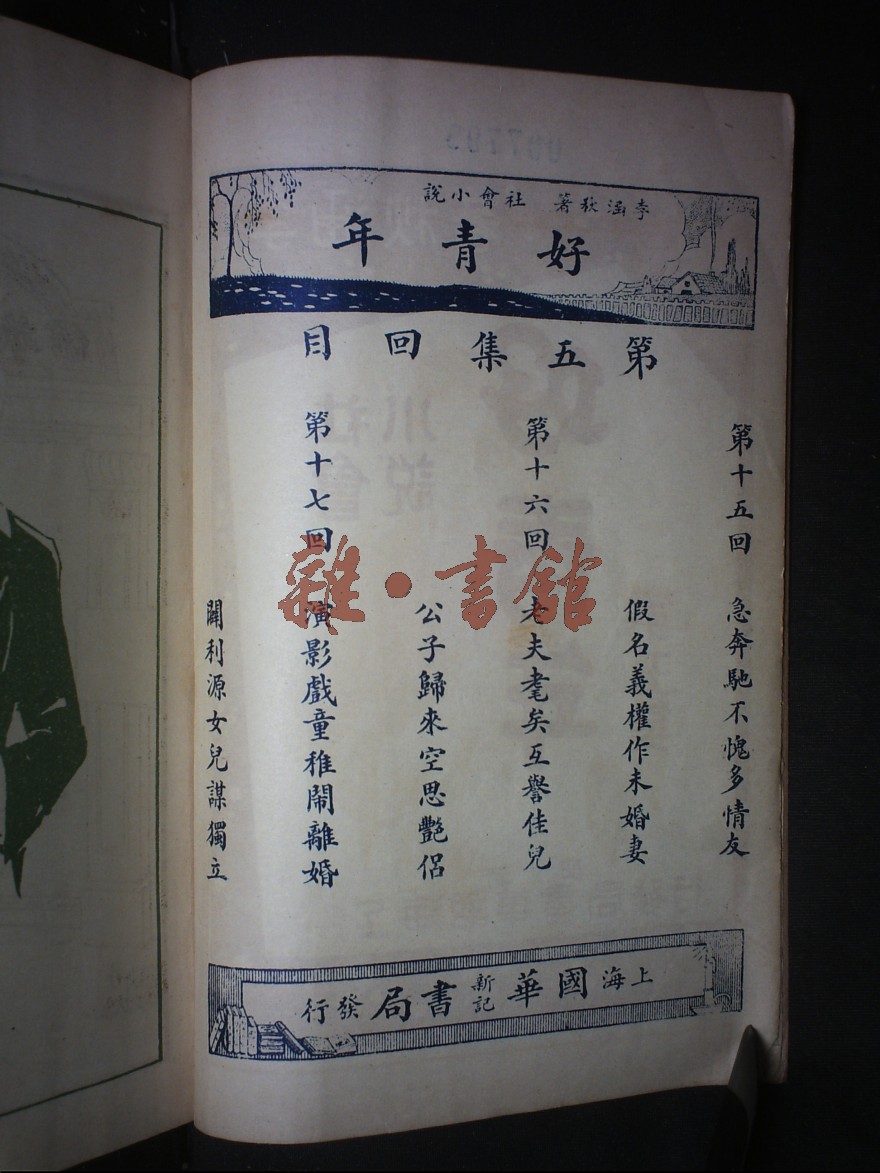 李涵秋著 社會小說
好青年
第五集回目
第十五回 急奔馳不愧多情友
假名義權作未婚妻
第十六回 老夫耄矣互譽佳兒
公子歸來空思艷侶
第十七回 演影戲童稚鬧離婚
開利源女兒謀獨立
上海國華新記書局發行
雜·書館